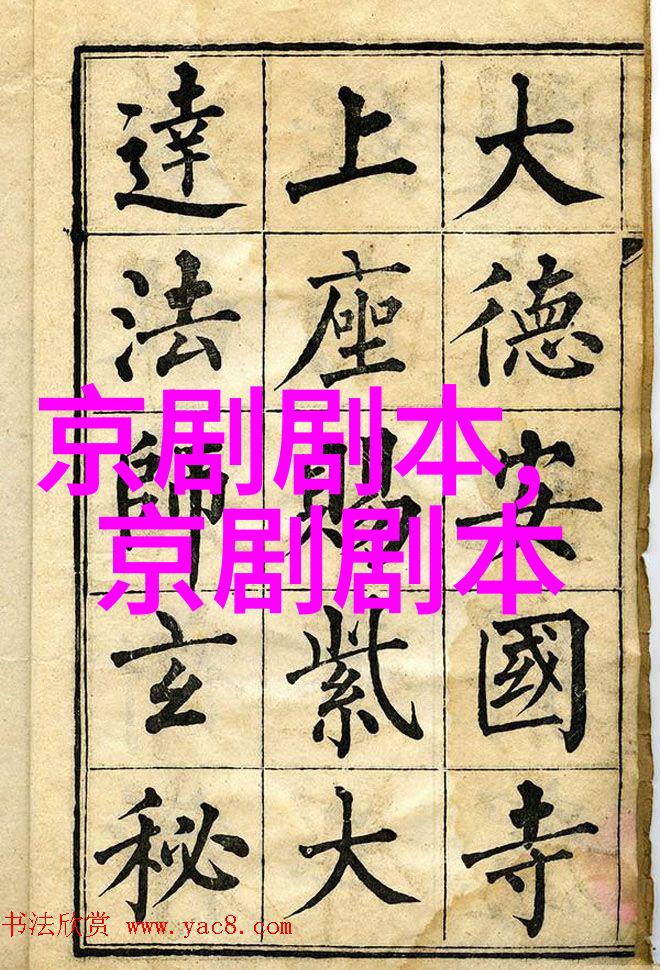 大德安國寺
上座賜紫大
達法師玄秘
京剧剧本,
京剧剧本
书法欣赏 www.yac8.com